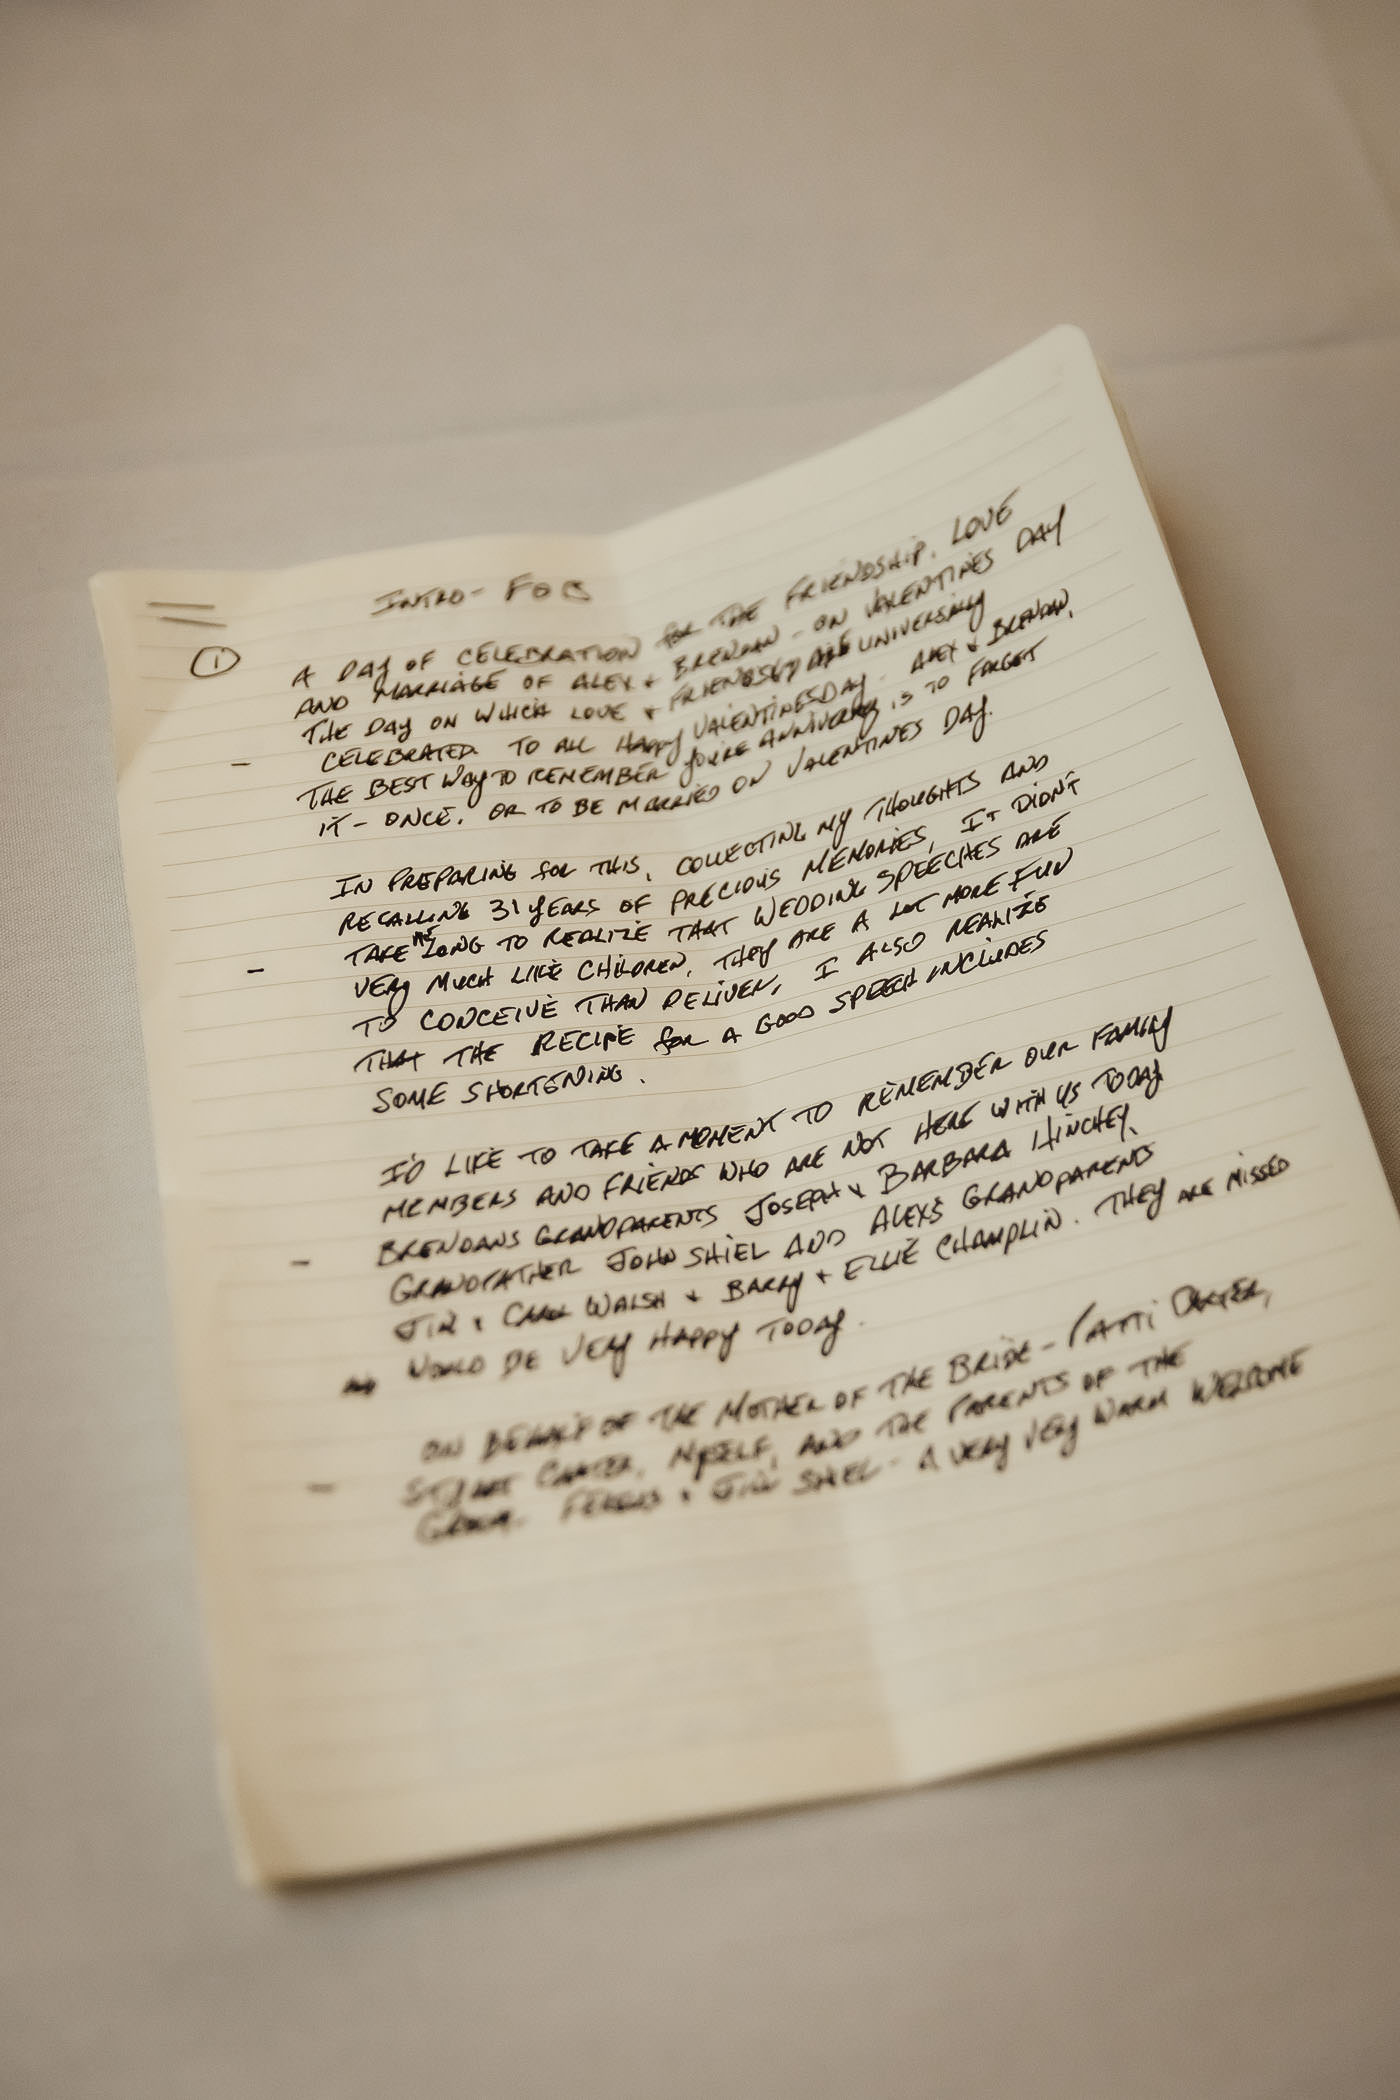 INTRO - FOB
1
A DAY OF CELEBRATION for THE FRIENDSHIP, LOVE
AND MARRIAGE OF ALEX + BRENDAN - ON VALENTINES DAY
THE DAY ON WHICH LOVE + FRIENDSHIP ARE UNIVERSALLY
- CELEBRATED. TO ALL HAPPY VALENTINESDAY. ALEX + BRENDAN,
THE BEST WAY TO REMEMBER YOURE ANNIVERARY IS TO FORGET
IT - ONCE. OR TO BE MARRIED ON VALENTINES DAY.
IN PREPARING for THIS, COLLECTING MY THOUGHTS AND
RECALLING 31 YEARS OF PRECIOUS MEMORIES, IT DIDN'T
TAKE ME LONG TO REALIZE THAT WEDDING SPEECHES ARE
- VERY MUCH LIKE CHILDREN, THEY ARE A LOT MORE FUN
TO CONCEIVE THAN DELIVER, I ALSO REALIZE
THAT THE RECIPE for A GOOD SPEECH INCLUDES
SOME SHORTENING.
I'D LIKE TO TAKE A MOMENT TO REMEMBER OUR FAMILY
MEMBERS AND FRIENDS WHO ARE NOT HERE WITH US TODAY
BRENDANS GRANDPARENTS JOSEPH + BARBARA HINCHEY,
- GRANDFATHER JOHN SHIEL AND ALEXS GRANDPARENTS
JIM + CAROL WALSH + BARRY + ELLIE CHAMPLIN. THEY ARE MISSED
WOULD BE VERY HAPPY TODAY.
ON BEHALF OF THE MOTHER OF THE BRIDE - PATTI CARTER,
- STUART CARTER, MYSELF, AND THE PARENTS OF THE
GROOM. FERGUS + JILL SHIEL - A VERY VERY WARM WELCOME